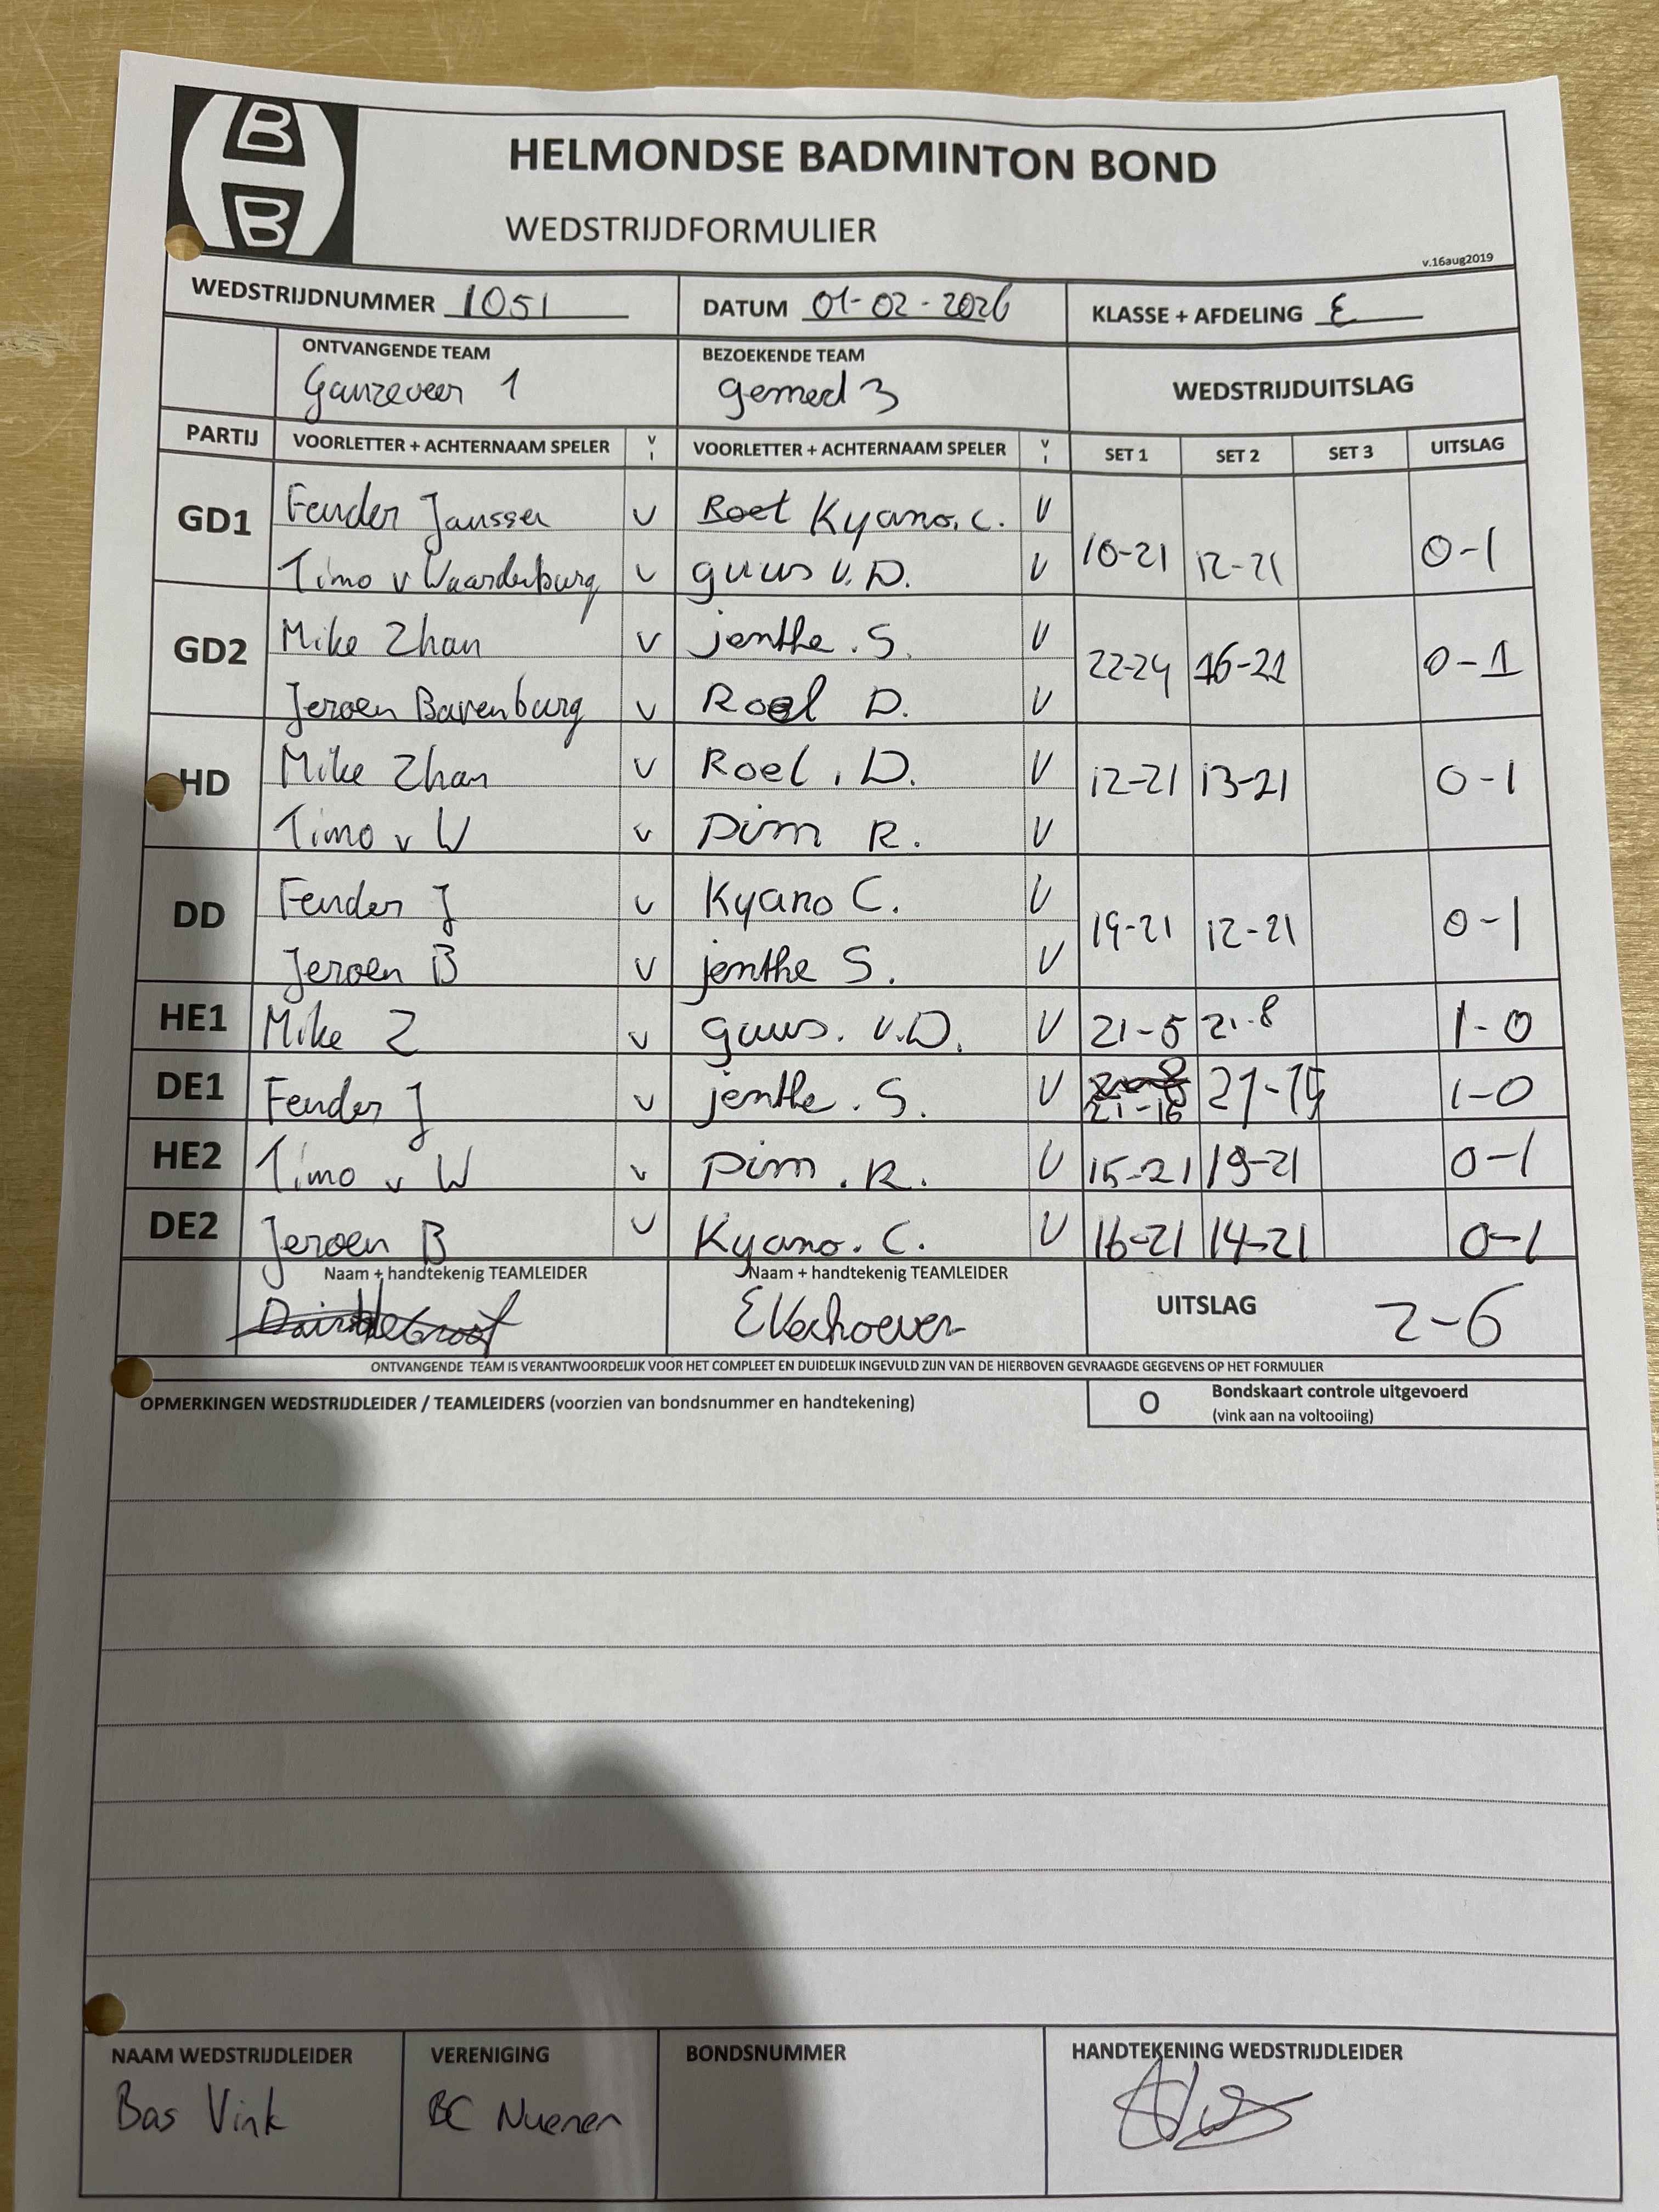 B
B
HELMONDSE BADMINTON BOND
WEDSTRIJDFORMULIER
v.16aug2019
WEDSTRIJDNUMMER 1051 DATUM 01-02-2026 KLASSE + AFDELING E
ONTVANGENDE TEAM BEZOEKENDE TEAM WEDSTRIJDUITSLAG
Ganzeveer 1 gemed 3
PARTIJ VOORLETTER + ACHTERNAAM SPELER V I VOORLETTER + ACHTERNAAM SPELER V I SET 1 SET 2 SET 3 UITSLAG
GD1 Fender Janssen V Roel Kyano. C. V 10-21 12-21 0-1
Timo v Waardenburg V guus v. D. V
GD2 Mike Zhan V jenthe . S. V 22-24 16-21 0-1
Jeroen Bavenburg V Roel D. V
HD Mike Zhan V Roel . D. V 12-21 13-21 0-1
Timo v W V Pim R. V
DD Fender J V Kyano C. V 19-21 12-21 0-1
Jeroen B V jenthe S. V
HE1 Mike Z V guus. v.D. V 21-5 21-8 1-0
DE1 Fender J V jenthe . S. V 21-16 21-15 1-0
HE2 Timo v W V Pim . R. V 15-21 19-21 0-1
DE2 Jeroen B V Kyano. C. V 16-21 14-21 0-1
Naam + handtekenig TEAMLEIDER Naam + handtekenig TEAMLEIDER UITSLAG 2-6
EVerhoeven
ONTVANGENDE TEAM IS VERANTWOORDELIJK VOOR HET COMPLEET EN DUIDELIJK INGEVULD ZIJN VAN DE HIERBOVEN GEVRAAGDE GEGEVENS OP HET FORMULIER
OPMERKINGEN WEDSTRIJDLEIDER / TEAMLEIDERS (voorzien van bondsnummer en handtekening) O Bondskaart controle uitgevoerd
(vink aan na voltooiing)
NAAM WEDSTRIJDLEIDER VERENIGING BONDSNUMMER HANDTEKENING WEDSTRIJDLEIDER
Bas Vink BC Nuenen